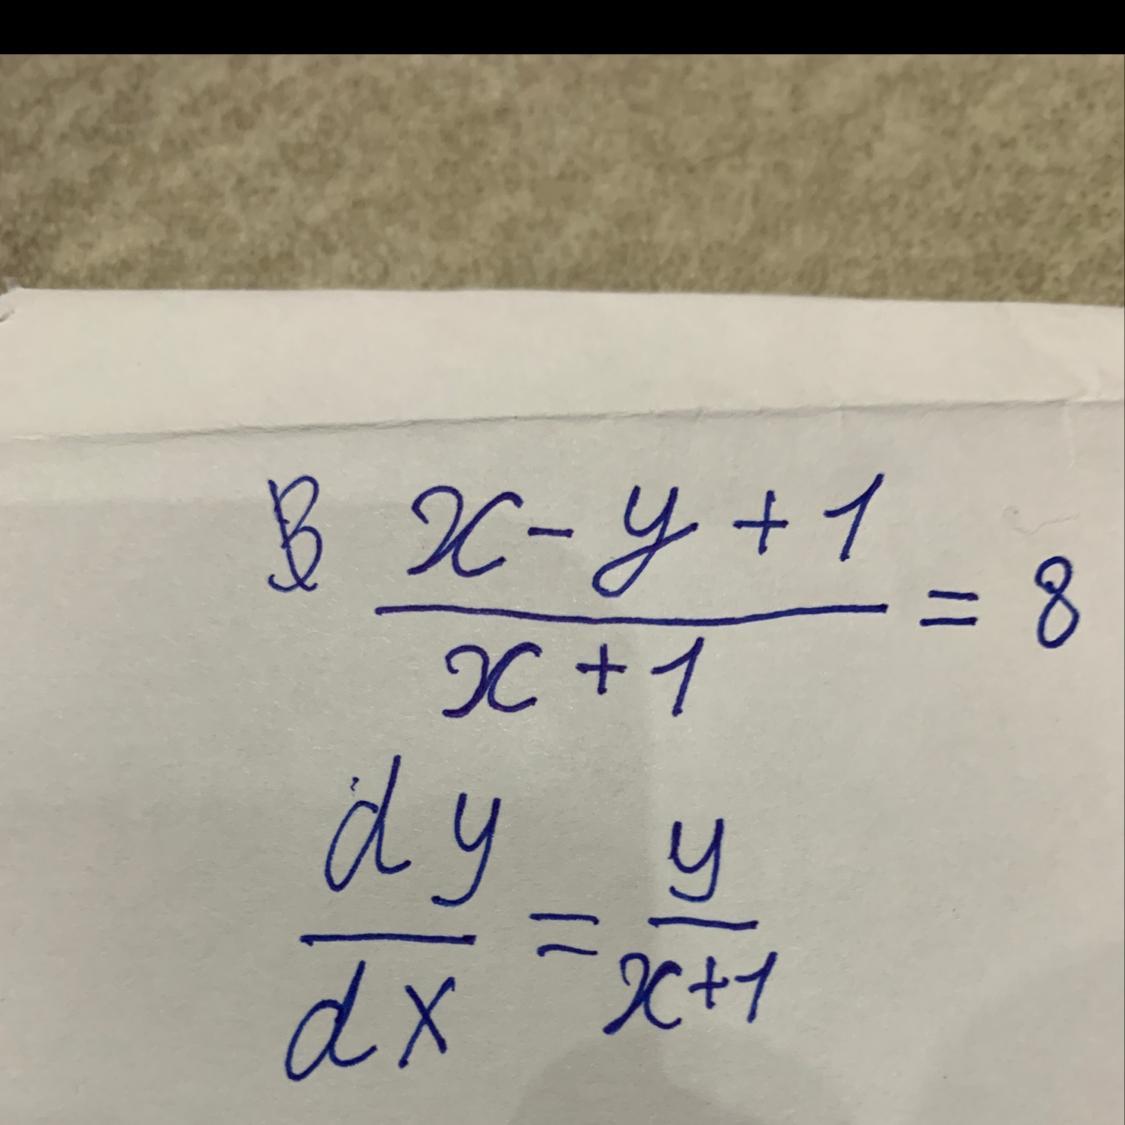 B (x - y + 1)/(x + 1) = 8
dy/dx = y/(x+1)